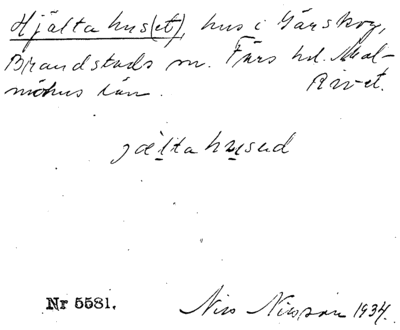 Hjälta hus(et), hus i Gärskog,
Brandstads sn. Färs hd. Mal-
möhus län. Rivet.
jælta husəd
Nr 5581. Nils Nilsson 1934.